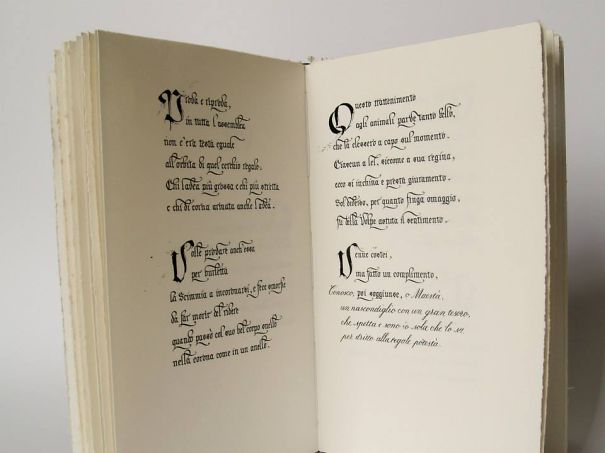 Prova e riprova,
in tutta l'assemblea
non c'era testa eguale
all'orbita di quel cerchio regale.
Chi l'avea più grossa e chi più stretta
e chi di corna armata anche l'avea.
Volle provare anch'essa
per burletta
la Scimmia a incoronarsi, e fece smorfie
da far morir del ridere
quando passò col suo bel corpo snello
nella corona come in un anello.
Questo trattenimento
agli animali parve tanto bello,
che la elessero a capo sul momento.
Ciascun a lei, siccome a sua regina,
ecco si inchina e presta giuramento.
Sol diverso, per quanto finga omaggio,
fu della Volpe astuta il sentimento.
Venne costei,
ma fatto un complimento,
Conosco, poi soggiunse, o Maestà,
un nascondiglio con un gran tesoro,
che spetta e sono io sola che lo sa
per diritto alla regale potestà.